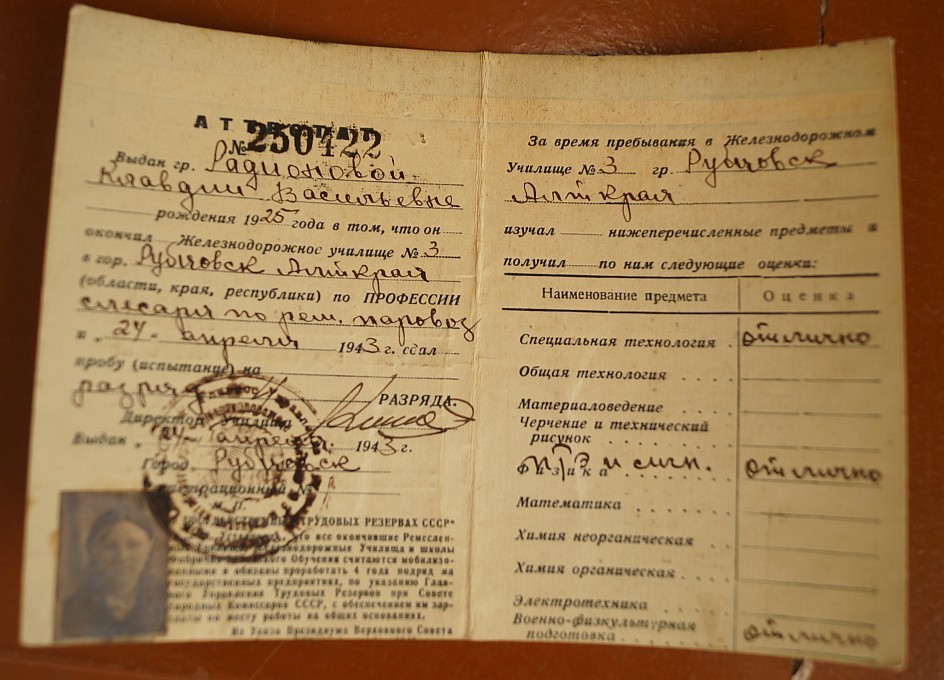 АТТЕСТАТ
№ 250422
Выдан гр. Радионовой
Клавдии Васильевне
рождения 1925 года в том, что он
окончил Железнодорожное училище № 3
в гор. Рубцовск Алткрая
(области, края, республики) по ПРОФЕССИИ
слесаря по рем. паровоз
и „24" апреля 1943 г. сдал
пробу (испытание) на
разряд РАЗРЯДА.
Директор Училища
Выдан „24" апреля 1943 г.
Город Рубцовск
Регистрационный №
М. П.
ТРУДОВЫХ РЕЗЕРВАХ СССР"
что все окончившие Ремеслен-
Железнодорожные Училища и школы
Обучения считаются мобилизо-
ванными и обязаны проработать 4 года подряд на
государственных предприятиях, по указанию Глав-
Управления Трудовых Резервов при Совете
Народных Комиссаров СССР, с обеспечением им зар-
платы по месту работы на общих основаниях.
Из Указа Президиума Верховного Совета
За время пребывания в Железнодорожном
Училище № 3 гр. Рубцовск
Алткрая
изучал нижеперечисленные предметы и
получил по ним следующие оценки:
Наименование предмета Оценка
Специальная технология отлично
Общая технология
Материаловедение
Черчение и технический
рисунок
Физика ПТЭ и сигн. отлично
Математика
Химия неорганическая
Химия органическая
Электротехника
Военно-физкультурная
подготовка отлично